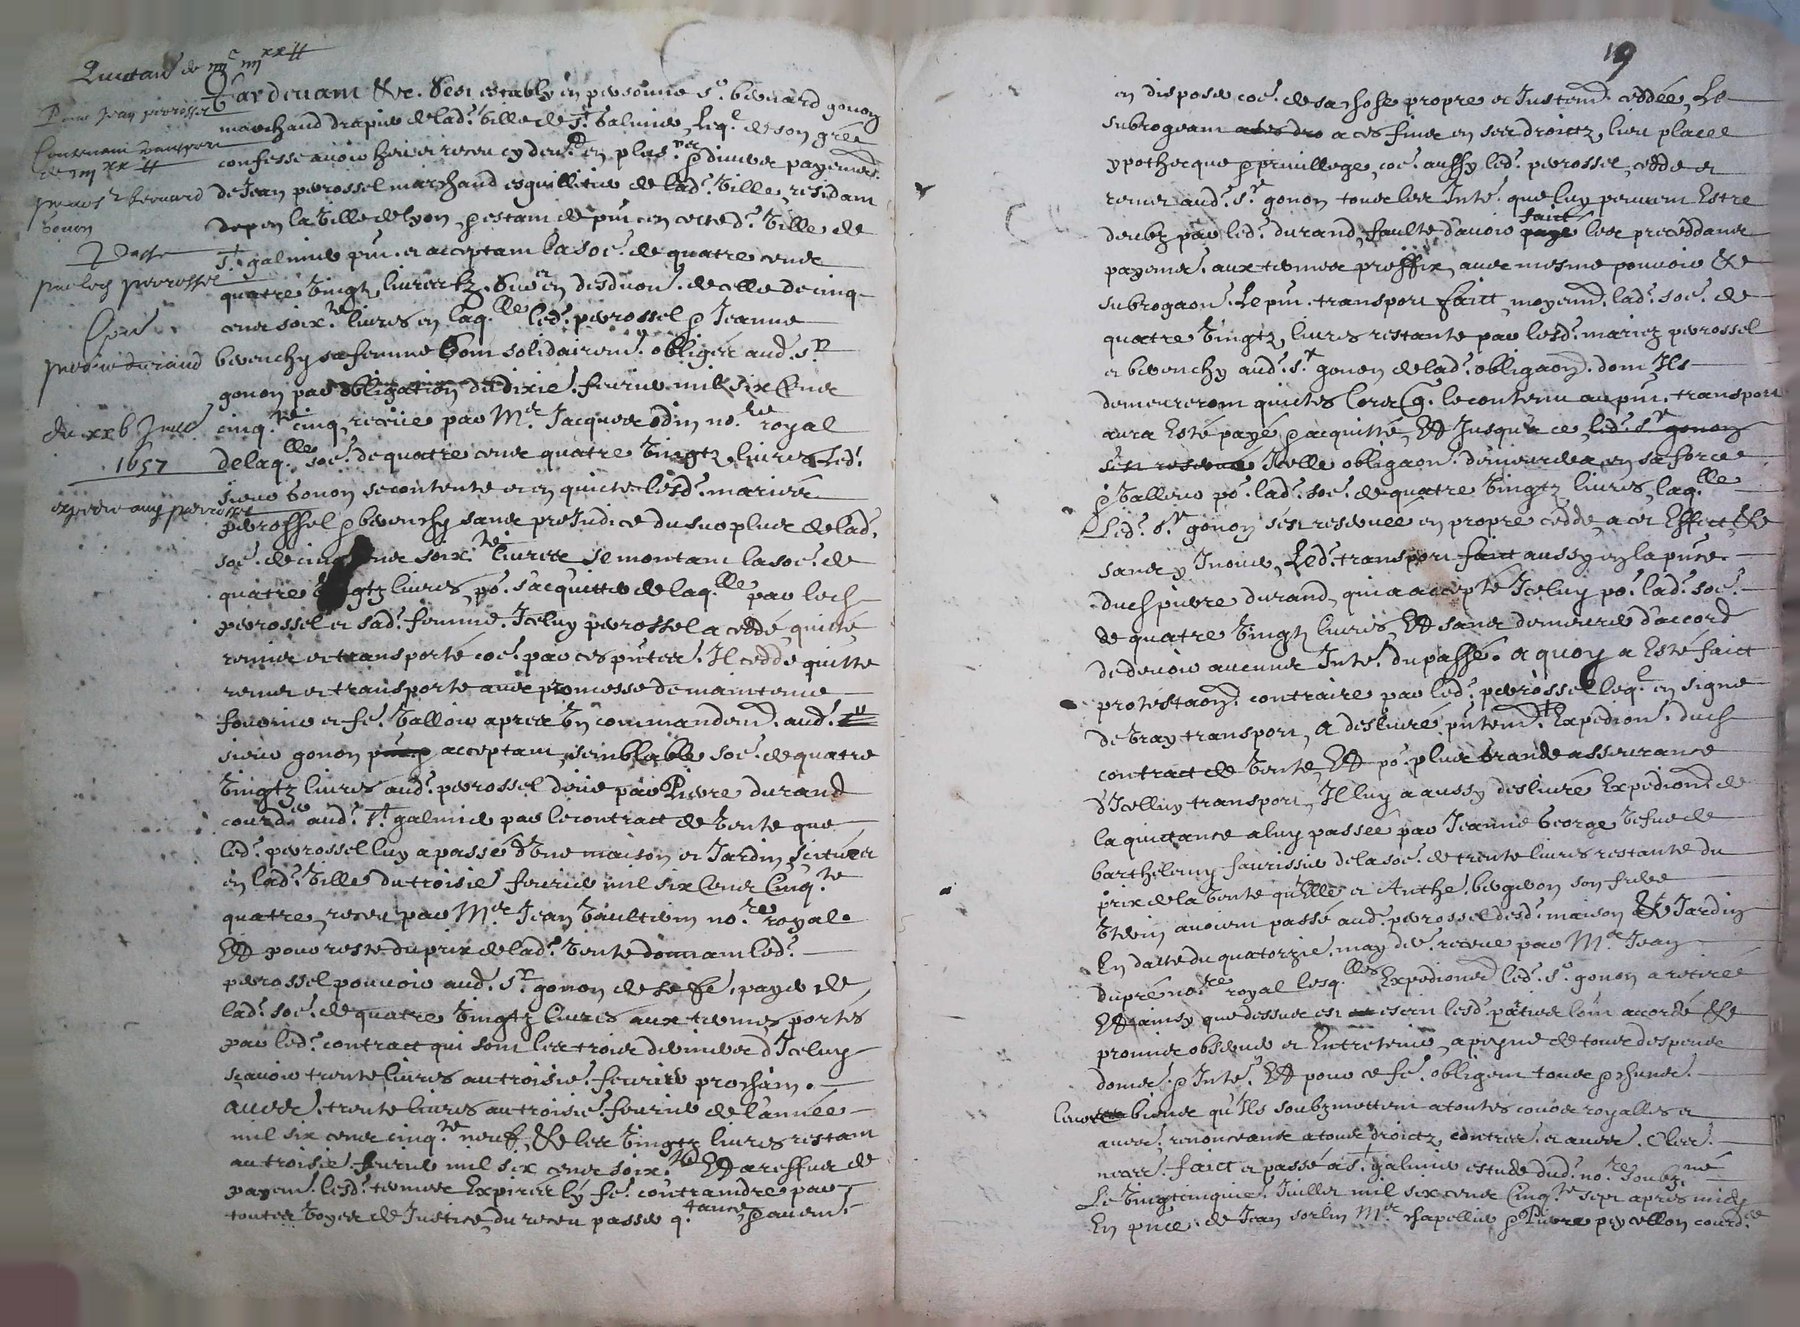 Quittance de iiijc iiijxx ll
Pour Jean perrossel
Contenant transport
de iiijxx ll
pour sr Bernard
Gonon
Passé
par led perrossel
Contre
pierre durand
du xxv Juillet
1657
expedié aux perrossel
Pardevant &c. s'est estably en personne sr. bernard gonon
marchand drapier de lad. ville de St galmier, leql. de son gré
confesse avoir heu et receu cy devt. en plusrs. & divers payements
de Jean perrossel marchand esguilletier de lad. ville, residant
en la ville de lyon, & estant de pnt en cested. ville de
St. galmier pnt. et acceptant la soe. de quatre cens
quatre vingtz livres tz. Et ce en desduon. de celle de cinq
cens soixte. livres en laqlle. led. perrossel & Jeanne
berenchy sa femme sont solidairemt. obligés aud. sr
gonon par obligation du dixie. febvrier mil six cens
cinqte. cinq, receue par Mer. Jacques odin nore. royal
de laqlle. soe. de quatre cens quatre vingtz livres led.
sieur Gonon se contente et en quicte lesd. mariés
perrossel & berenchy sans prejudice du surplus de lad.
soe. de cinq cens soixte. livres se montant la soe. de
quatre vingtz livres, po. s'acquitter de laqlle. par led
perrossel et sad. femme. Iceluy perrossel a ceddé, quitté
remis et transporté coe. par ces pntes. Il cedde quitte
remet et transporte avec promesse de maintenir
fournir et fe. valloir apres un commandemt. aud.
sieur gonon acceptant, semblable soe. de quatre
vingtz livres aud. perrossel deue par Pierre durand
courdr. aud. St. galmier par le contract de vente que
led. perrossel luy a passé d'une maison et Jardin scitués
en lad. ville du troisie. febvrier mil six cens Cinqte
quatre, receu par Mer Jean vaultierin nore. royal.
Et pour reste du prix de lad. vente donnant led.
perrossel pouvoir aud. sr. gonon de se fe. payer de
lad. soe. de quatre vingtz livres aux termes portés
par led. contract qui sont les trois divines d'Iceluy
sçavoir trente livres au troisie. febvrier prochain.
aultres. trente livres au troisie. febvrier de l'année
mil six cens cinqte. neuf, & les vingtz livres restant
au troisie. febvrier mil six cens soixte. Et a reffus de
payemt. lesd. termes Expirés ly fe. contraindre par
toutes voyes de Justice, du receu passer qtance, & avemt.
19
en disposer coe. de sa chose propre et Justemt. ceddée, Le
subrogeant a ces fins en ses droictz, lieu place
ypothecque & privillege, coe. aussy led. perrossel, cedde et
remet aud. sr. gonon tous les Inte. que luy peuvent Estre
deubz par led. durand, faulte d'avoir faict les preceddans
payemts. aux termes preffix, avec mesme pouvoir &
subrogaon. Le pnt. transport faict, moyent. lad. soe. de
quatre vingtz, livres restante par lesd. mariez perrossel
et berenchy aud. sr gonon de lad. obligaon. dont Ils
demeureront quictes lors q. le contenu au pnt. transport
aura Esté payé & acquitté, Et Jusqu'a ce, led. sr gonon
s'est reservé Icelle obligaon. demeurera en sa force
& valleur po. lad. soe. de quatre vingtz livres, laqlle
Led. sr gonon s'est reservée en propre cedde, a cet Effect, &
sans y Inover, Led. transport faict aussy en la pnce.
dud pierre durand, qui a accepté Iceluy po. lad. soe.
de quatre vingtz livres, Et sans demeurer d'accord
de devoir aucuns Inte. du passé. a quoy a Esté faict
protestaon. contraire par led. perrossel leql. en signe
de vray transport, a deslivré pntemt. Expedion. dud
contract de vente, Et po. plus grande assurance
d'Icelluy transport, Il luy a aussy deslivré Expedion. de
la quittance a luy passée par Jeanne George vefve de
barthelemy faurissier de la soe. de trente livres restante du
prix de la vente qu'Elle et Anthe. bergeron son frere
uterin avoient passé aud. perrossel desd. maison & Jardin
En datte du quatorzie. may der. receue par Me. Jean
dupré nore. royal lesqlles. Expedions led. sr. gonon a retirée
Et ainsy que dessus est escrit lesd. parties l'ont accordé &
promis observer et Entretenir, a peyne de tous despens
domes. & Inte. Et pour ce fe. obligent tous & chuns.
leurs biens qu'Ils soubzmettent a toutes cours royalles et
aultres, renonceant a tous droictz, contres. et aultres. Cler.
necess. faict et passé a St. galmier estude dud. nore. soubzné
Le vingtcinquie. Juillet mil six cens Cinqte sept apres midy
En pnce. de Jean sorlin Mer chapellier & Pierre peycellon courdr